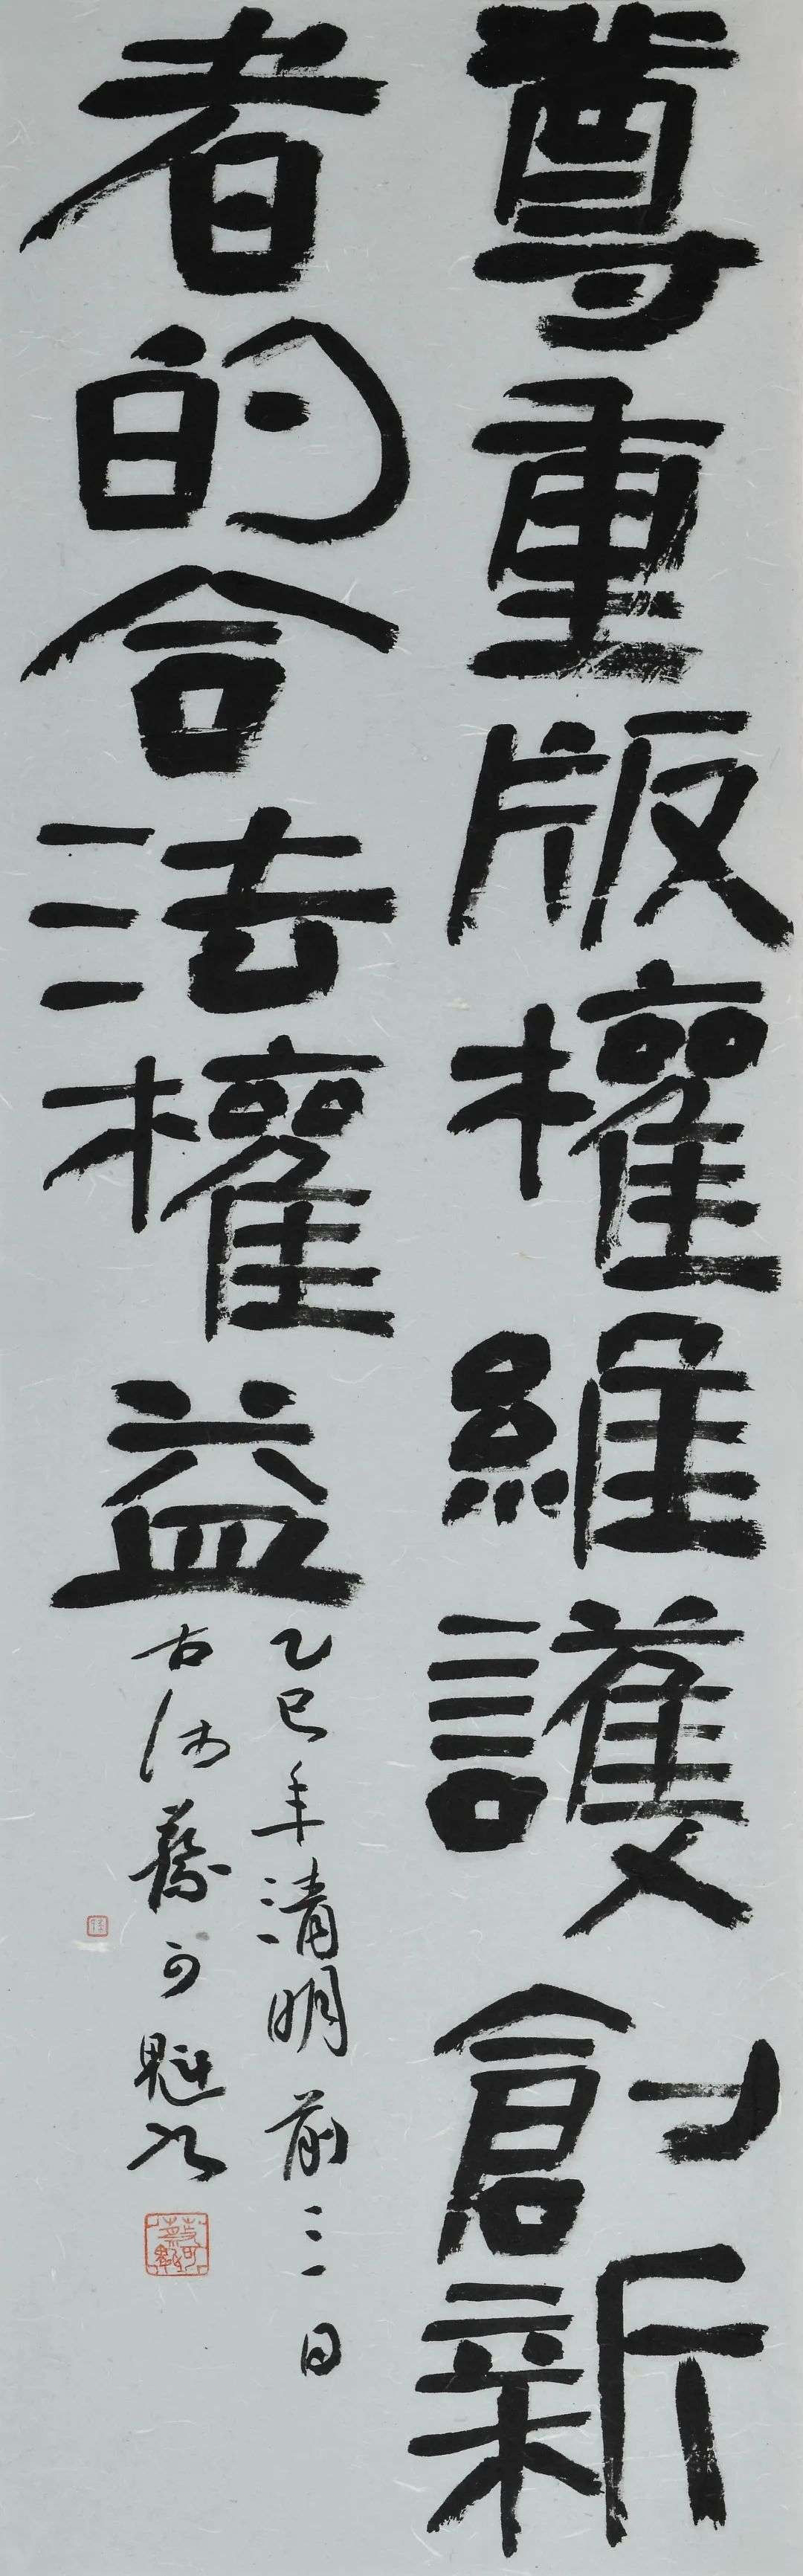 尊重版權維護創新
者的合法權益
乙巳年清明前三日
古沛蔡可魁書
蔡可魁